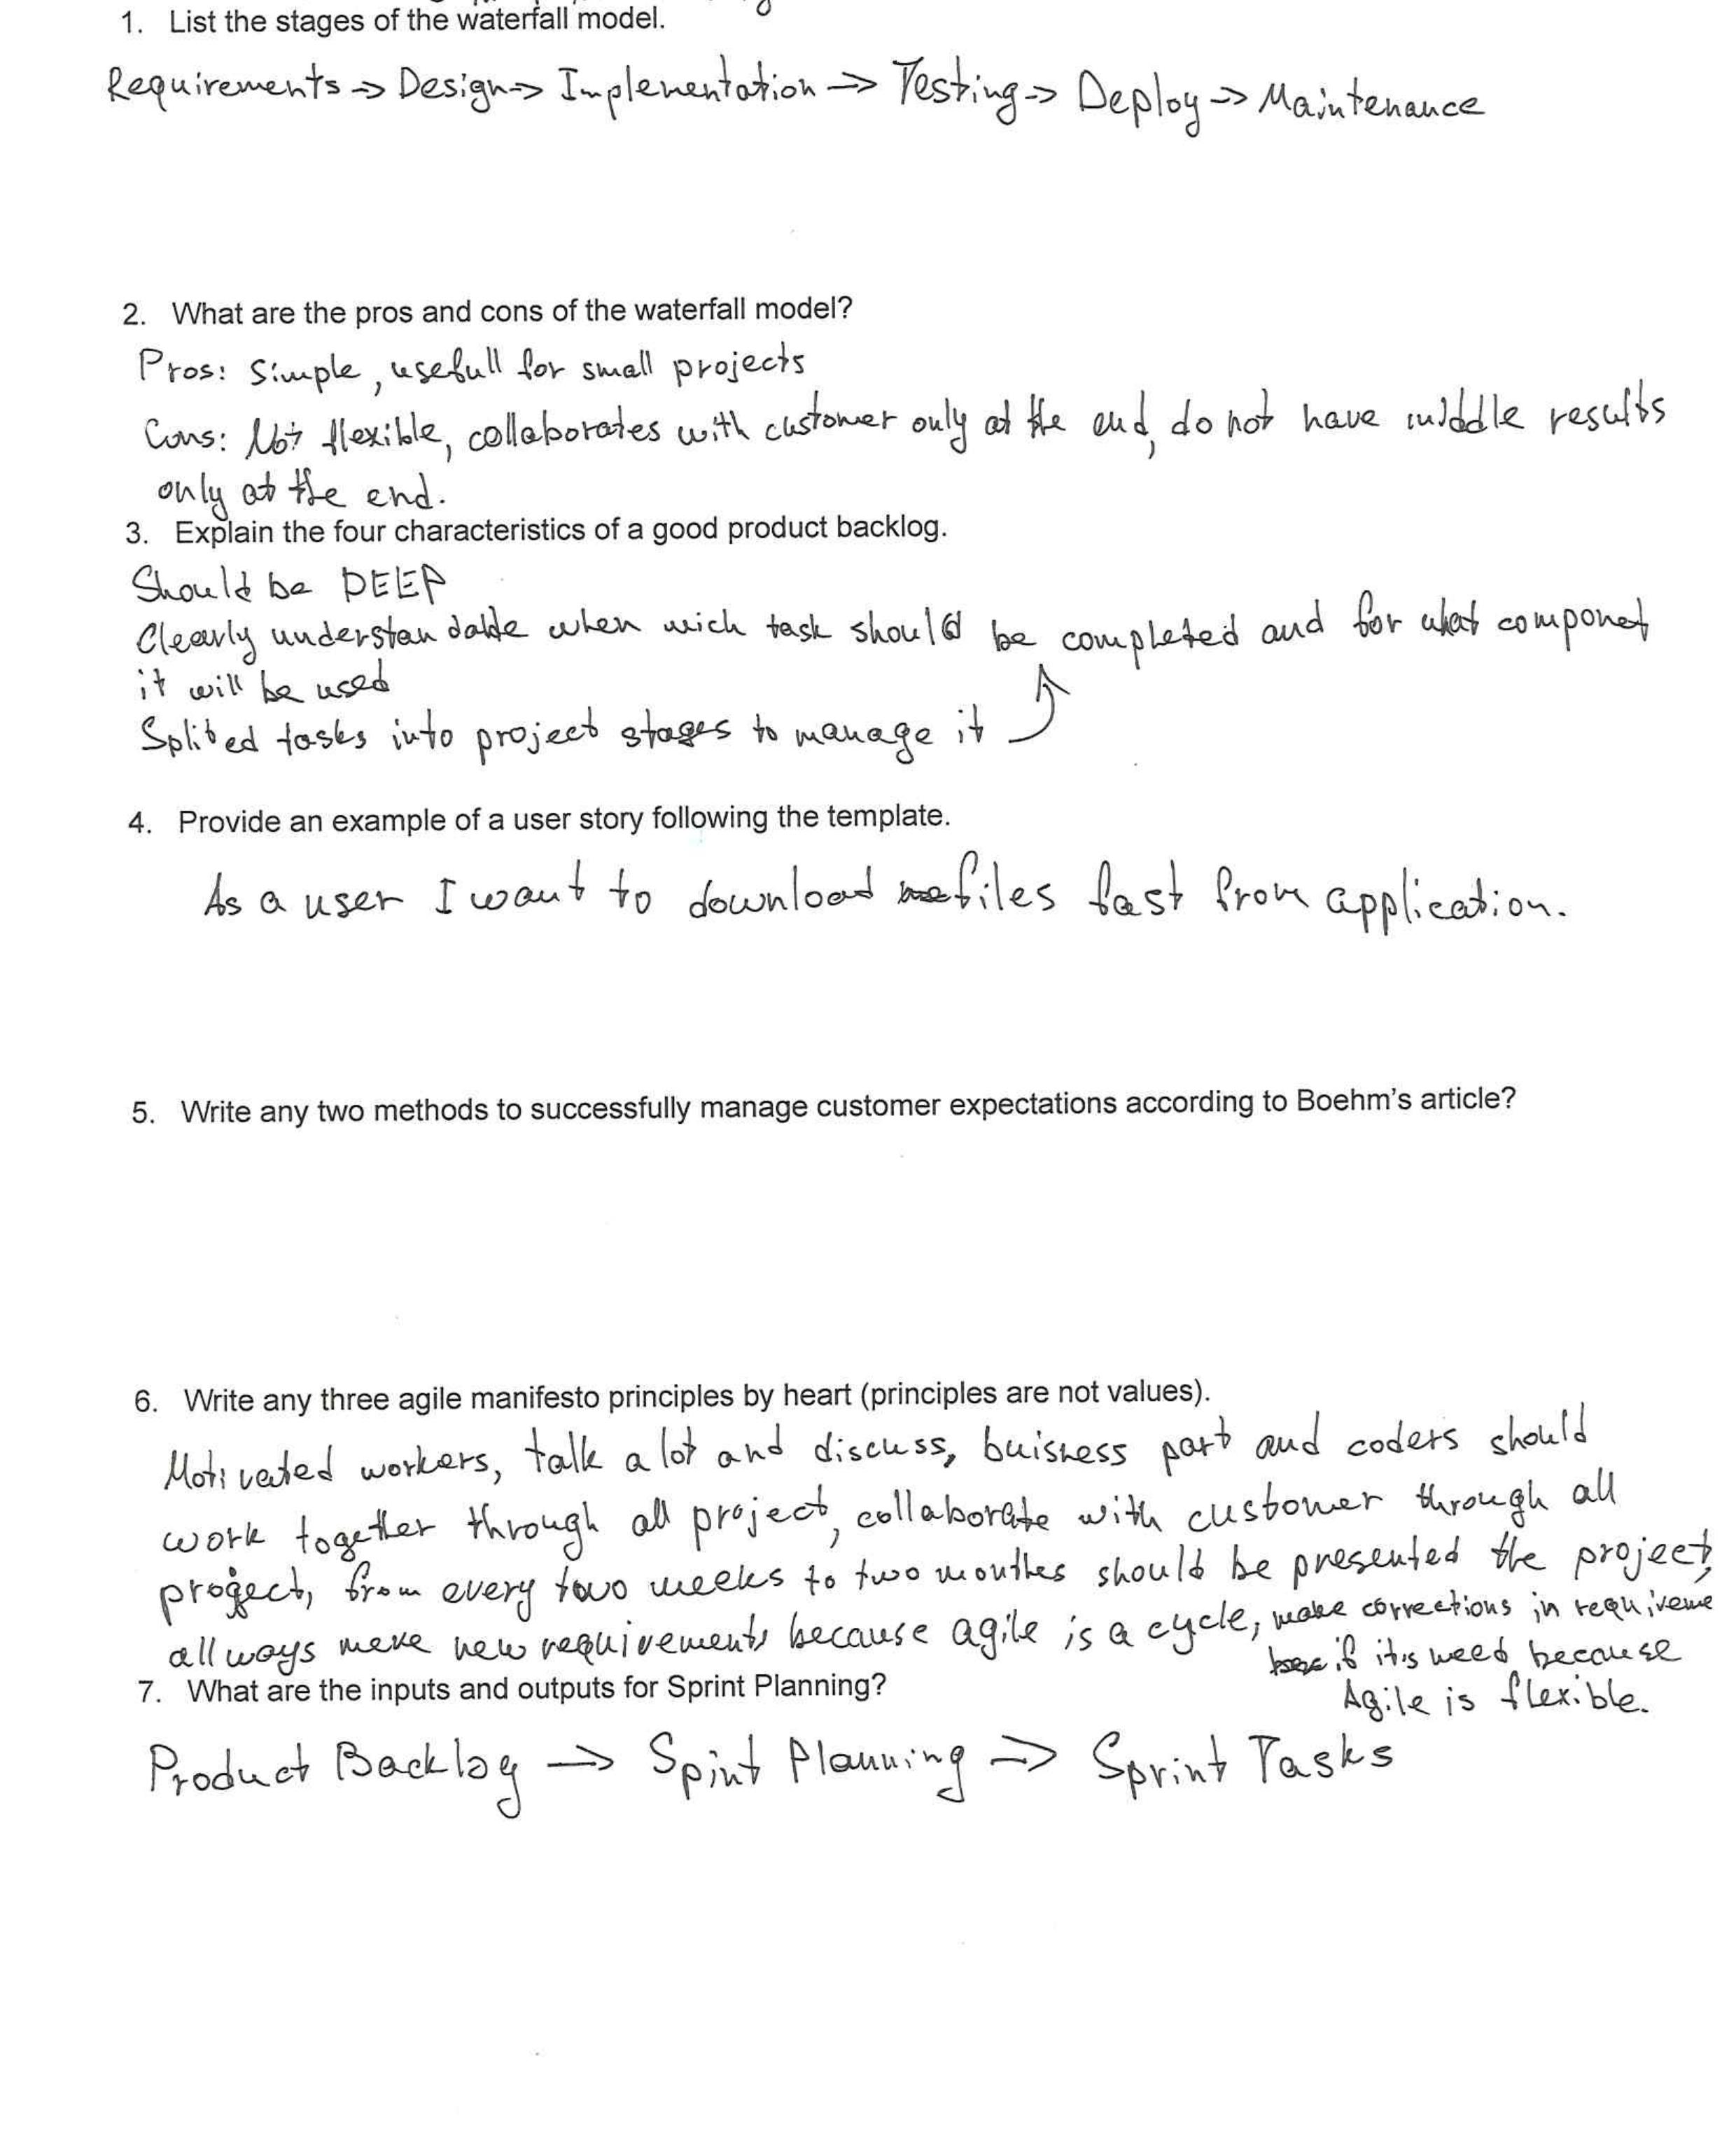 1. List the stages of the waterfall model.
Requirements => Design => Implementation => Testing => Deploy => Maintenance
2. What are the pros and cons of the waterfall model?
Pros: Simple, usefull for small projects
Cons: Not flexible, collaborates with customer only at the end, do not have middle results
only at the end.
3. Explain the four characteristics of a good product backlog.
Should be DEEP
Clearly understandable when wich task should be completed and for what componet
it will be used
Splited tasks into project stages to manage it
4. Provide an example of a user story following the template.
As a user I want to download files fast from application.
5. Write any two methods to successfully manage customer expectations according to Boehm's article?
6. Write any three agile manifesto principles by heart (principles are not values).
Motivated workers, talk a lot and discuss, buisness part and coders should
work together through all project, collaborate with customer through all
project, from every two weeks to two monthes should be presented the project,
allways meke new requirements because agile is a cycle, make corrections in requireme
if it's need because
7. What are the inputs and outputs for Sprint Planning?
Agile is flexible.
Product Backlog -> Spint Planning => Sprint Tasks